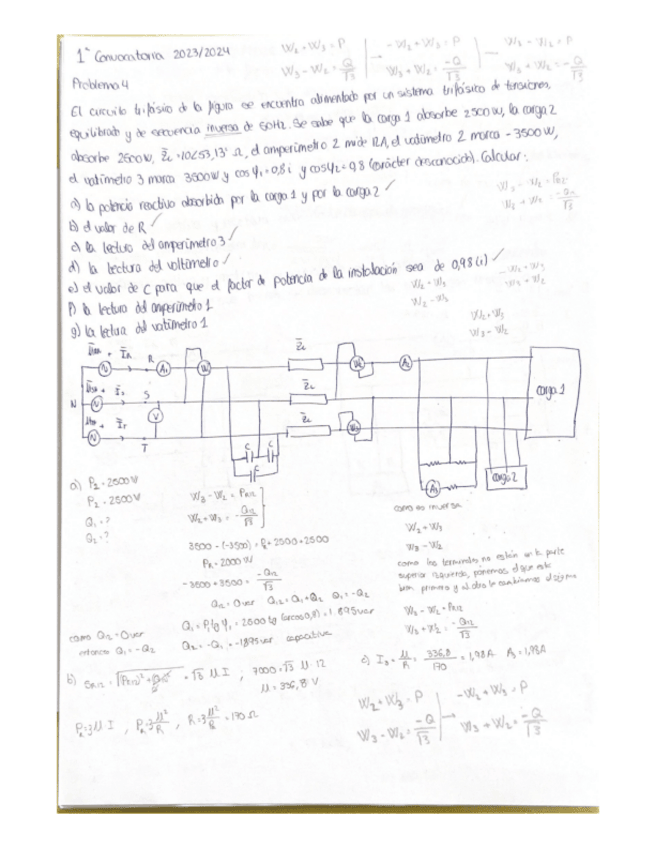 1ª Convocatoria 2023/2024
W₂+W₃=P
W₃-W₂=Q/√3
-W₂+W₃=P
W₃+W₂=-Q/√3
W₃-W₂=P
W₃+W₂=-Q/√3
Problema 4
El circuito trifásico de la figura se encuentra alimentado por un sistema trifásico de tensiones,
equilibrado y de secuencia inversa de 50Hz. Se sabe que la carga 1 absorbe 2500W, la carga 2
absorbe 2500W, Z̄L=10∠53,13° Ω, el amperímetro 2 mide 12A, el vatímetro 2 marca -3500W,
el vatímetro 3 marca 3500W y cosφ₁=0,8i y cosφ₂=0,8 (carácter desconocido). Calcular:
a) la potencia reactiva absorbida por la carga 1 y por la carga 2 ✓
b) el valor de R ✓
c) la lectura del amperímetro 3 ✓
d) la lectura del voltímetro ✓
e) el valor de C para que el factor de potencia de la instalación sea de 0,98(i) ✓
f) la lectura del amperímetro 1
g) la lectura del vatímetro 1
W₂+W₃
W₃-W₂
R
A₁
W₁
Z̄L
W₂
A₂
N
S
V
Z̄L
carga 1
Z̄L
W₃
T
C
C
C
A₃
carga 2
a) P₁=2500W
P₂=2500W
Q₁=?
Q₂=?
W₃-W₂=PR12
W₂+W₃=-Q12/√3
3500-(-3500)=PR+2500+2500
PR=2000W
-3500+3500=-Q12/√3
Q12=0var Q12=Q₁+Q₂ Q₁=-Q₂
como Q12=0var
entonces Q₁=-Q₂
Q₁=P₁tgφ₁=2500 tg(arcos0,8)=1895var
Q₂=-Q₁=-1895var capacitiva
como es inversa
W₂+W₃
W₃-W₂
como los terminales no están en la parte
superior izquierda, ponemos el que está
bien primero y al otro le cambiamos el signo
W₃-W₂=PR12
W₃+W₂=-Q12/√3
b) SR12=√(PR12)²+(Q12)²=√3 U I ; 7000=√3 U·12
U=336,8 V
c) I₃=U/R=336,8/170=1,98A A₃=1,98A
PR=3U·I , PR=3U²/R , R=3U²/PR=170Ω
W₂+W₃=P
W₃-W₂=-Q/√3
-W₂+W₃=P
W₃+W₂=-Q/√3